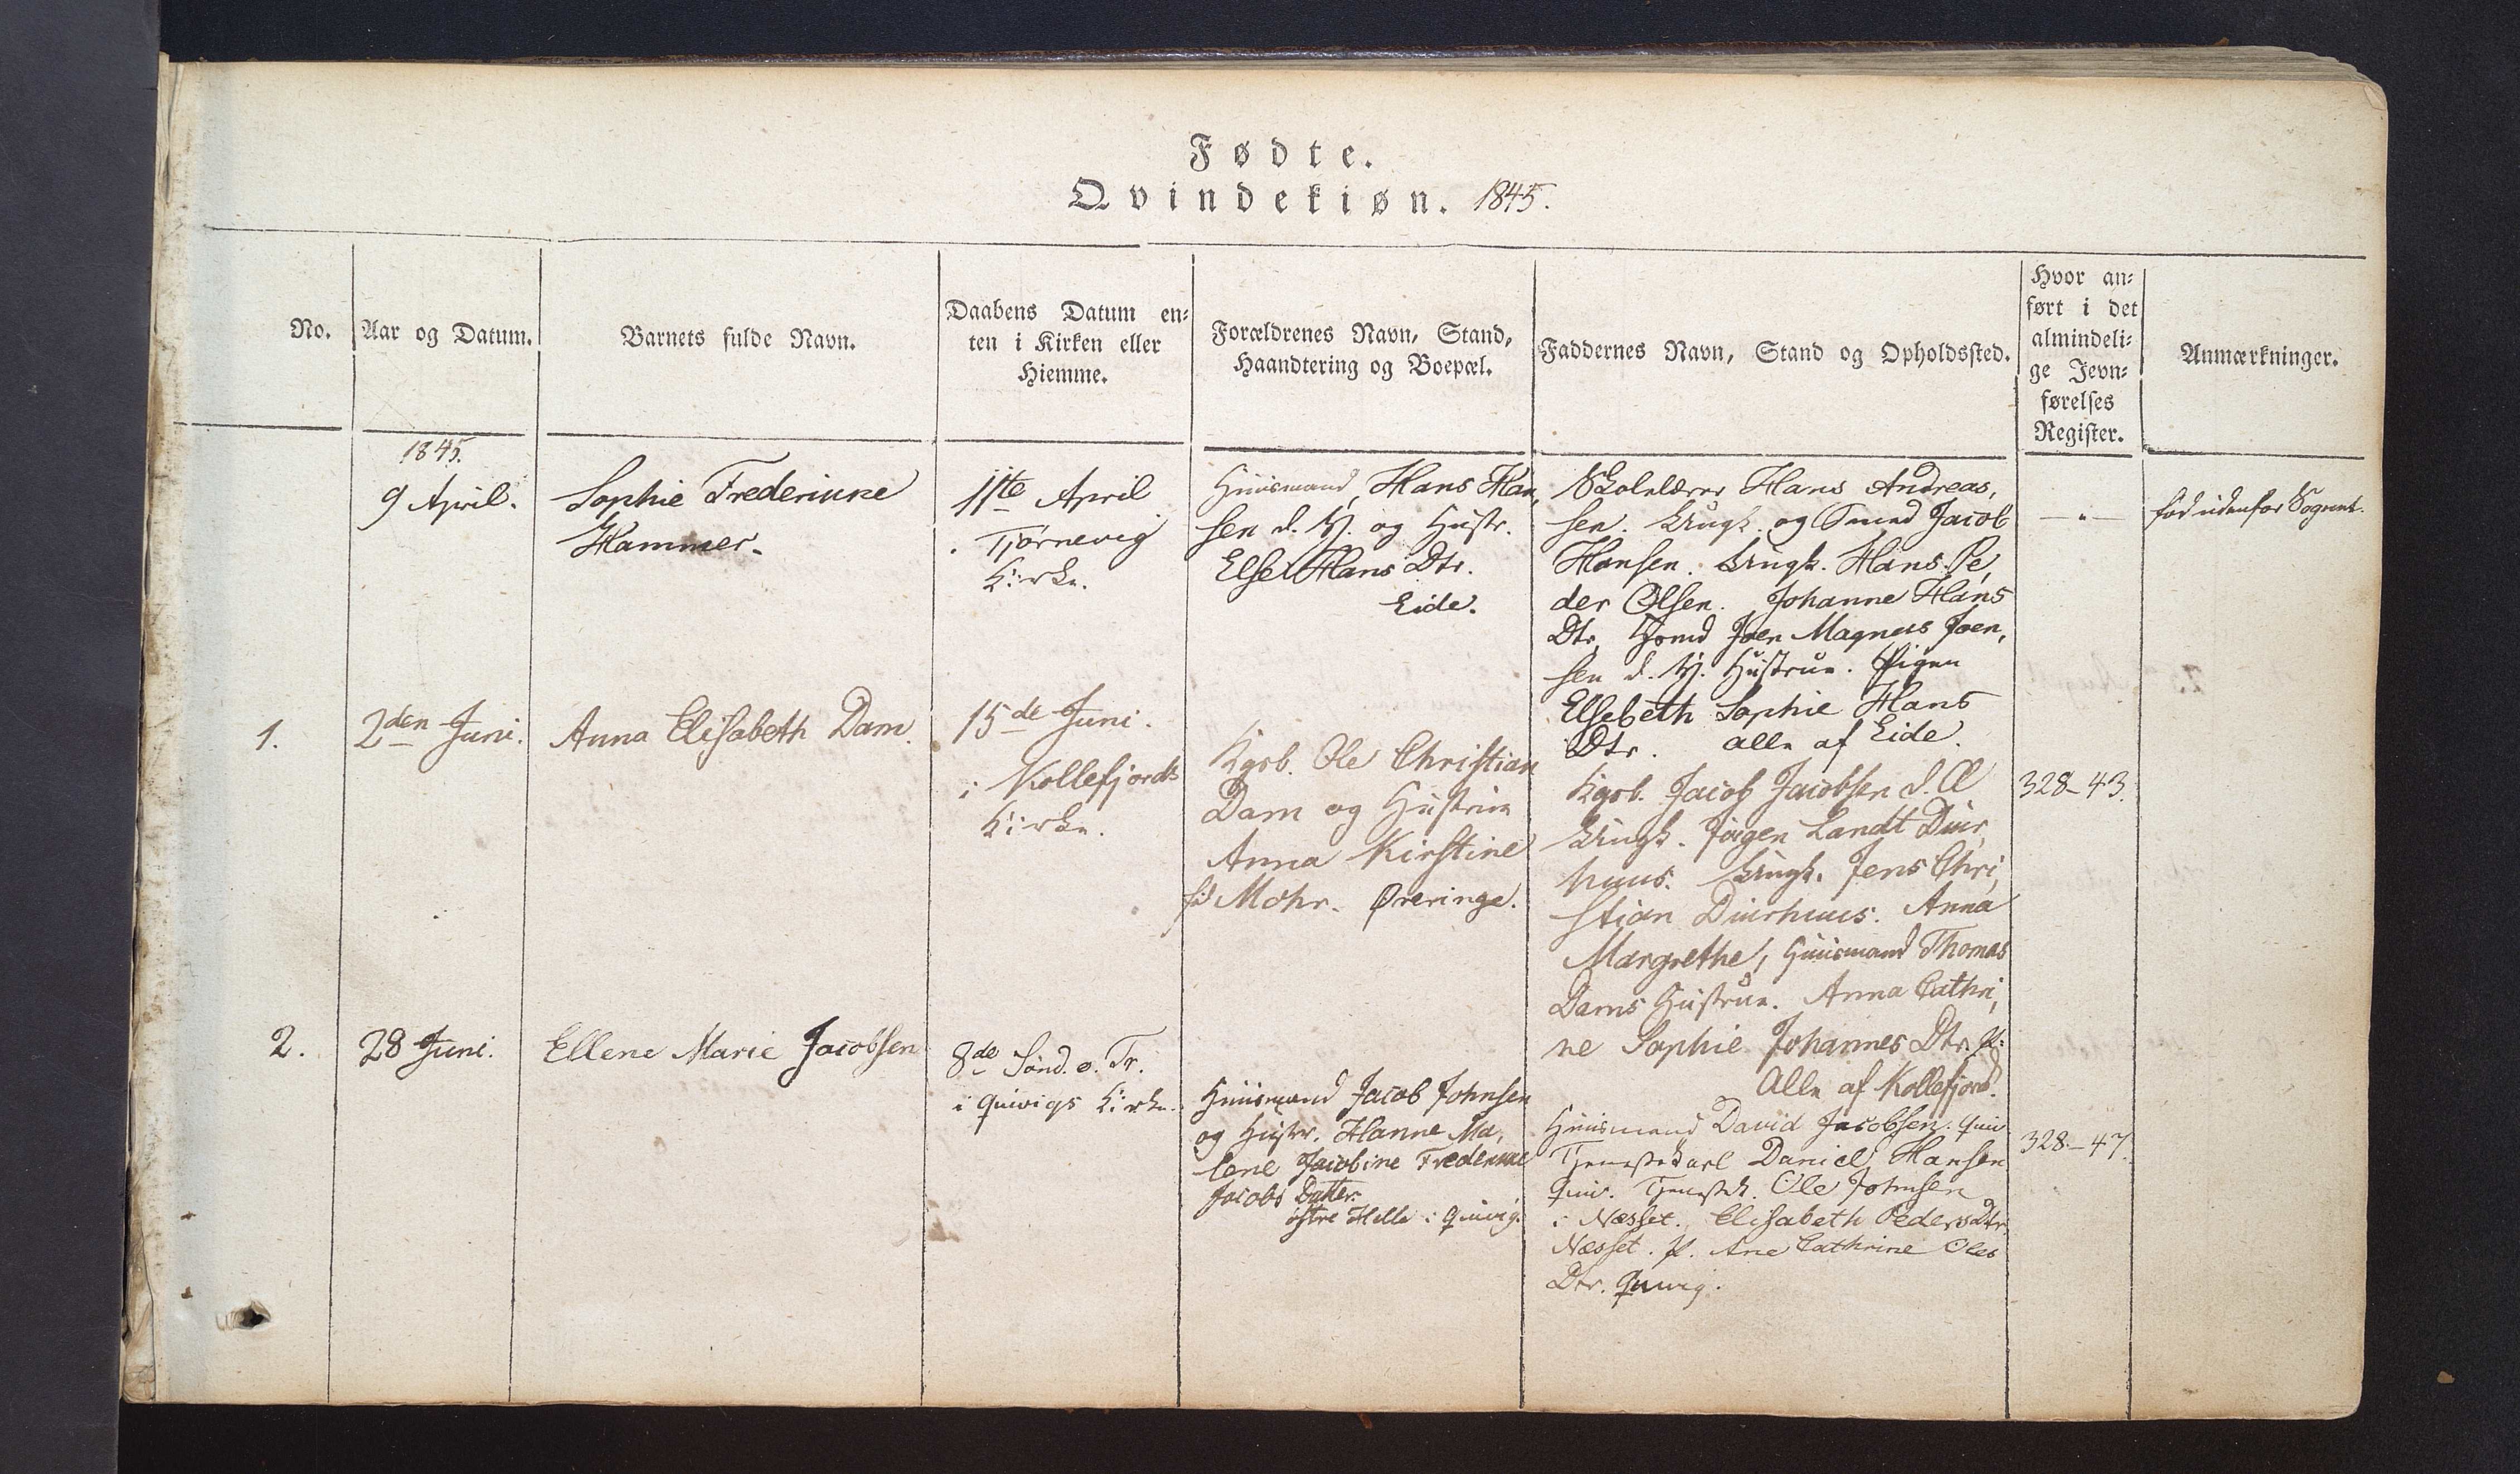 Fødte.
Qvindekiøn. 1845.
No.
Aar og Datum.
Barnets fulde Navn.
Daabens Datum en-
ten i Kirken eller
Hiemme.
Forældrenes Navn, Stand,
Haandtering og Boepæl.
Faddernes Navn, Stand og Opholdssted.
Hvor an-
ført i det
almindeli-
ge Jevn-
førelses
Register.
Anmærkninger.
1845.
9 April.
Sophie Frederikke
Hammer.
11te April
i Tjørnevig
Kirke.
Huusmand, Hans Han,
sen d. Y. og Hustr.
Else Hans Dtr.
Eide.
Skolelærer Hans Andreas,
sen. Ungk. og Smed Jacob
Hansen. Ungk. Hans Pe,
der Olsen. Johanne Hans
Dtr, Hsmd Joen Magnus Joen,
sen d. Y. Hustrue. Pigen
Elsebeth Sophie Hans
Dtr. alle af Eide.
— " —
fød udenfor Sognet.
1.
2den Juni.
Anna Elisabeth Dam.
15de Juni.
i Kollefjords
Kirke.
Kgsb. Ole Christian
Dam og Hustrue
Anna Kirstine
fd Mohr. Øreringe.
Kgsb. Jacob Jacobsen d. Æ
Ungk. Jögen Landt Diur,
huus. Ungk. Jens Chri,
stian Diurhuus. Anna
Margrethe, Huusmand Thomas
Dams Hustrue. Anna Cathri,
ne Sophie Johannes Dtr. P:
Alle af Kollefjord.
328-43.
2.
28 Juni.
Ellene Marie Jacobsen
8de Sönd. e. Tr.
i Quivigs Kirke.
Huusmand Jacob Johnsen
og Hustr. Hanne Ma,
lene Jacobine Frederikke
Jacobs Datter.
østre Helle i Quivig.
Huusmand David Jacobsen. Quiv
Tjenestekarl Daniel Hansen
Quiv. Tjenestk. Ole Johnsen
i Næsset. Elisabeth Peders Dtr,
Næsset. P. Ane Cathrine Oles
Dtr. Quivig.
328-47.